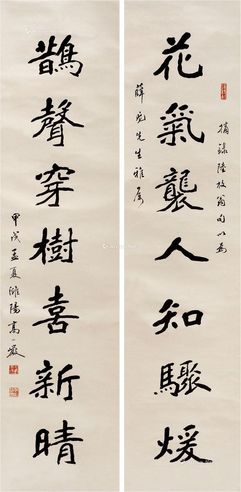 花氣襲人知驟煖
摘錄陸放翁句以為
薛處先生雅屬
鵲聲穿樹喜新晴
甲戌孟夏濰陽高一嚴